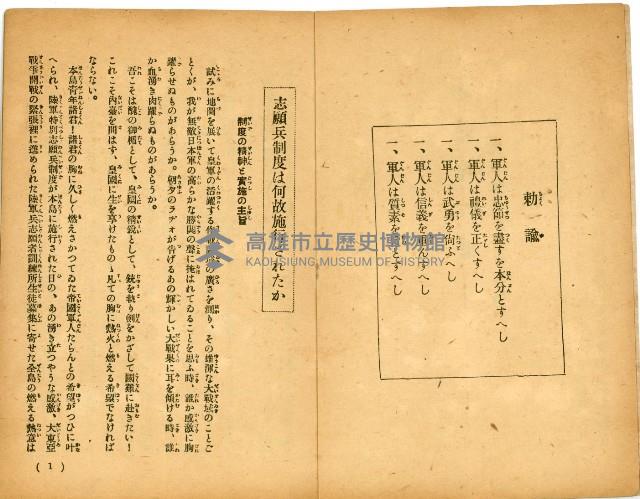 勅諭
一、軍人は忠節を盡すを本分とすへし
一、軍人は禮儀を正くすへし
一、軍人は武勇を尚ふへし
一、軍人は信義を重んすへし
一、軍人は質素を旨とすへし
志願兵制度は何故施行されたか
制度の精神と實施の主旨
試みに地圖を展いて皇軍の活躍する作戰地域の廣さを測り、その雄渾な大戰域のことご
とくが、我が無敵日本軍の高らかな勝鬨の聲に掩はれてゐることを思ふ時、誰か感激に胸
躍らせぬものがあらうか。朝夕のラヂオが告げるあの輝かしい大戰果に耳を傾ける時、誰
か血湧き肉躍らぬものがあらうか。
吾こそは醜の御楯として、皇國の精鋭として、銃を執り劍をかざして國難に赴きたい！
これこそ内臺を問はず、皇國に生を享けたもの凡ての胸に熱火と燃える希望でなければ
ならない。
本島青年諸君！諸君の胸に久しく燃えさかつてゐた帝國軍人たらんとの希望がつひに叶
へられ、陸軍特別志願兵制度が本島に施行された日の、あの湧き立つやうな感激、大東亞
戰爭開戰の緊張裡に進められた陸軍兵志願者訓練所生徒募集に寄せた全島の燃える熱意は
（1）
高雄市立歷史博物館
KAOHSIUNG MUSEUM OF HISTORY